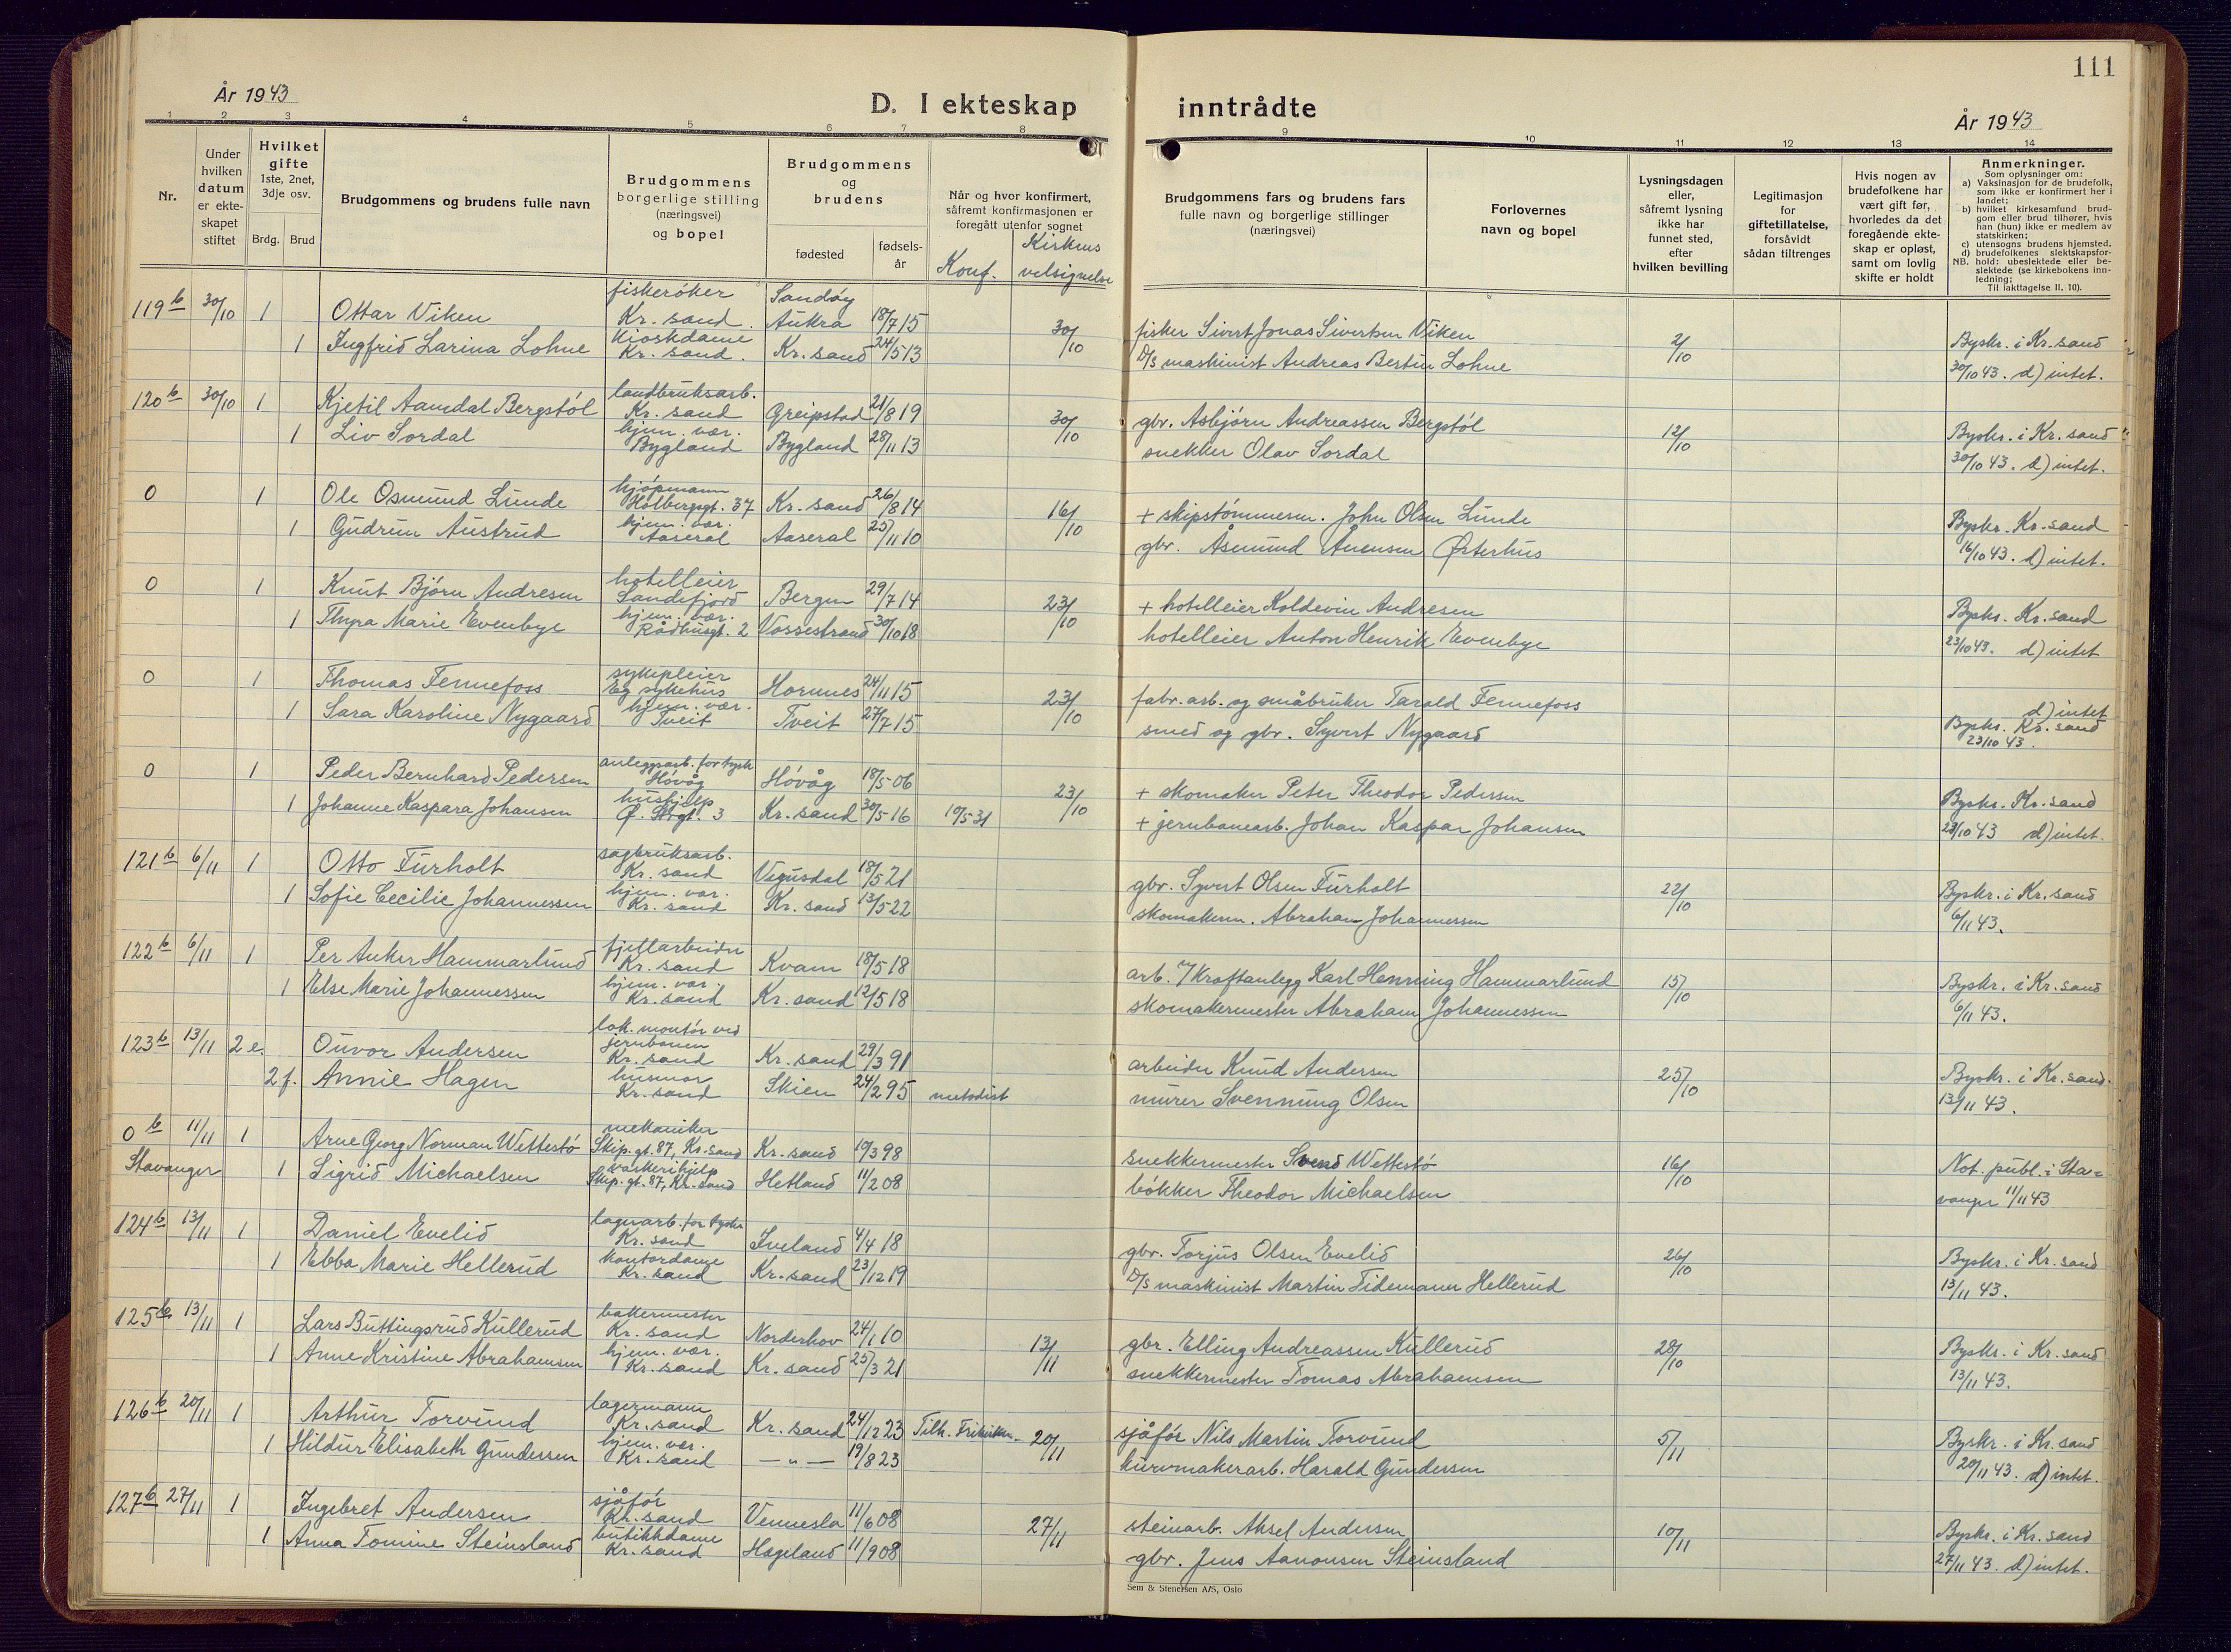 111
År 1943
D. I ekteskap
inntrådte
År 1943
1 2 3 4 5 6 7 8 9 10 11 12 13 14
Nr.
Under hvilken datum er ekte-skapet stiftet
Hvilket gifte 1ste, 2net, 3dje osv.
Brdg. Brud
Brudgommens og brudens fulle navn
Brudgommens borgerlige stilling (næringsvei) og bopel
Brudgommens og brudens
fødested
fødsels-år
Når og hvor konfirmert, såfremt konfirmasjonen er foregått utenfor sognet
Konf.
Kirkens velsignelse
Brudgommens fars og brudens fars fulle navn og borgerlige stillinger (næringsvei)
Forlovernes navn og bopel
Lysningsdagen eller, såfremt lysning ikke har funnet sted, efter hvilken bevilling
Legitimasjon for giftetillatelse, forsåvidt sådan tiltrenges
Hvis nogen av brudefolkene har vært gift før, hvorledes da det foregående ekte-skap er opløst, samt om lovlig skifte er holdt
Anmerkninger.
Som oplysninger om:
a) Vaksinasjon for de brudefolk, som ikke er konfirmert her i landet;
b) hvilket kirkesamfund brud-gom eller brud tilhører, hvis han (hun) ikke er medlem av statskirken;
c) utensogns brudens hjemsted.
d) brudefolkenes slektskapsfor-hold: ubeslektede eller be-slektede (se kirkebokens inn-ledning;
NB.
Til iakttagelse II. 10).
119 b 30/10 1 Ottar Viken fiskerøker Kr. sand. Sandøy Aukra 18/7 15 30/10 fisker Sivert Jonas Sivertsen Viken 2/10 Byskr. i Kr. sand
1 Ingfrid Larina Lohne Kioskdame Kr. sand. Kr. sand 24/5 13 D/S maskinist Andreas Bertin Lohne 30/10 43. d) intet.
120 b 30/10 1 Kjetil Aamdal Bergstøl landbruksarb. Kr. sand Greipstad 21/8 19 30/10 gbr. Asbjørn Andreassen Bergstøl 12/10 Byskr. i Kr. sand
1 Liv Sordal hjem. vær. Bygland Bygland 28/11 13 snekker Olav Sordal 30/10 43. d) intet.
0 1 Ole Osmund Lunde kjøpmann Holbergsgt. 37 Kr. sand 26/8 14 16/10 + skipstømmerm. John Olsen Lunde Byskr. Kr. sand
1 Gudrun Austrud hjem. vær. Aaseral Aaseral 25/11 10 gbr. Åsmund Ånensen Østerhus 16/10 43. d) intet.
0 1 Knut Bjørn Andresen hotelleier Sandefjord Bergen 29/7 14 23/10 + hotelleier Koldevin Andresen Byskr. Kr. sand
1 Thyra Marie Evenbye hjem. vær. Rådhusgt. 2 Vossestrand 30/10 18 hotelleier Anton Henrik Evenbye 23/10 43. d) intet
0 1 Thomas Fennefoss sykepleier Eg sykehus Hornnes 24/11 15 23/10 fabr. arb. og småbruker Tarald Fennefoss d) intet
1 Sara Karoline Nygaard hjem. vær. Tveit Tveit 27/7 15 smed og gbr. Syvert Nygaard Byskr. Kr. sand 23/10 43.
0 1 Peder Bernhard Pedersen anleggsarb. for tysk Høvåg Høvåg 18/5 06 23/10 + skomaker Peter Theodor Pedersen Byskr. Kr. sand
1 Johanne Kaspara Johansen hushjelp Ø. Strgt. 3 Kr. sand 30/5 16 10/5 31 + jernbanearb. Johan Kaspar Johansen 23/10 43 d) intet.
121 b 6/11 1 Otto Furholt sagbruksarb. Kr. sand Vegusdal 18/5 21 gbr. Syvert Olsen Furholt 22/10 Byskr. i Kr. sand
1 Sofie Cecilie Johannessen hjem. vær. Kr. sand Kr. sand 13/5 22 skomakerm. Abraham Johannessen 6/11 43.
122 b 6/11 1 Per Anker Hammarlund fjellarbeider Kr. sand Kvam 18/5 18 arb. v/ Kraftanlegg Karl Henning Hammarlund 15/10 Byskr. i Kr. sand
1 Else Marie Johannessen hjem. vær. Kr. sand Kr. sand 12/5 18 skomakermester Abraham Johannessen 6/11 43.
123 b 13/11 2 e. Ouvor Andersen lok. montør ved jernbanen Kr. sand Kr. sand 29/3 91 arbeider Knud Andersen 25/10 Byskr. i Kr. sand.
2 f. Annie Hagen husmor Kr. sand Skien 24/2 95 metodist murer Svenning Olsen 13/11 43.
0 b 11/11 1 Arne Georg Norman Wettestø mekaniker Skip. gt. 87, Kr. sand Kr. sand 10/3 98 snekkermester Svend Wettestø 16/10 Not. publ. i Sta=
Stavanger 1 Sigrid Michaelsen vaskerihjelp Skip. gt. 87, Kr. sand Hetland 11/2 08 bøkker Theodor Michaelsen vanger 11/11 43
124 b 13/11 1 Daniel Evelid lagerarb. for tysker Kr. sand Iveland 4/4 18 gbr. Torjus Olsen Evelid 26/10 Byskr. i Kr. sand
1 Ebba Marie Hellerud kontordame Kr. sand Kr. sand 23/12 19 D/S maskinist Martin Tidemann Hellerud 13/11 43.
125 b 13/11 1 Lars Buttingsrud Kullerud bakermester Kr. sand Norderhov 24/1 10 13/11 gbr. Elling Andreassen Kullerud 28/10 Byskr. i Kr. sand
1 Anne Kristine Abrahamsen hjem. vær. Kr. sand Kr. sand 25/3 21 snekkermester Tomas Abrahamsen 13/11 43.
126 b 20/11 1 Arthur Torvund lagermann Kr. sand Kr. sand 24/12 23 Tilh. Frikirken 20/11 sjåfør Nils Martin Torvund 5/11 Byskr. i Kr. sand
1 Hildur Elisabeth Gundersen hjem. vær. Kr. sand — " — 19/8 23 kurvmakerarb. Harald Gundersen 20/11 43. d) intet.
127 b 27/11 1 Ingebret Andersen sjåfør Kr. sand Vennesla 11/6 08 27/11 steinarb. Aksel Andersen 10/11 Byskr. i Kr. sand
1 Anna Tomine Steinsland butikkdame Kr. sand Hægeland 11/9 08 gbr. Jens Aanonsen Steinsland 27/11 43. d) intet.
Sem & Stenersen A/S, Oslo